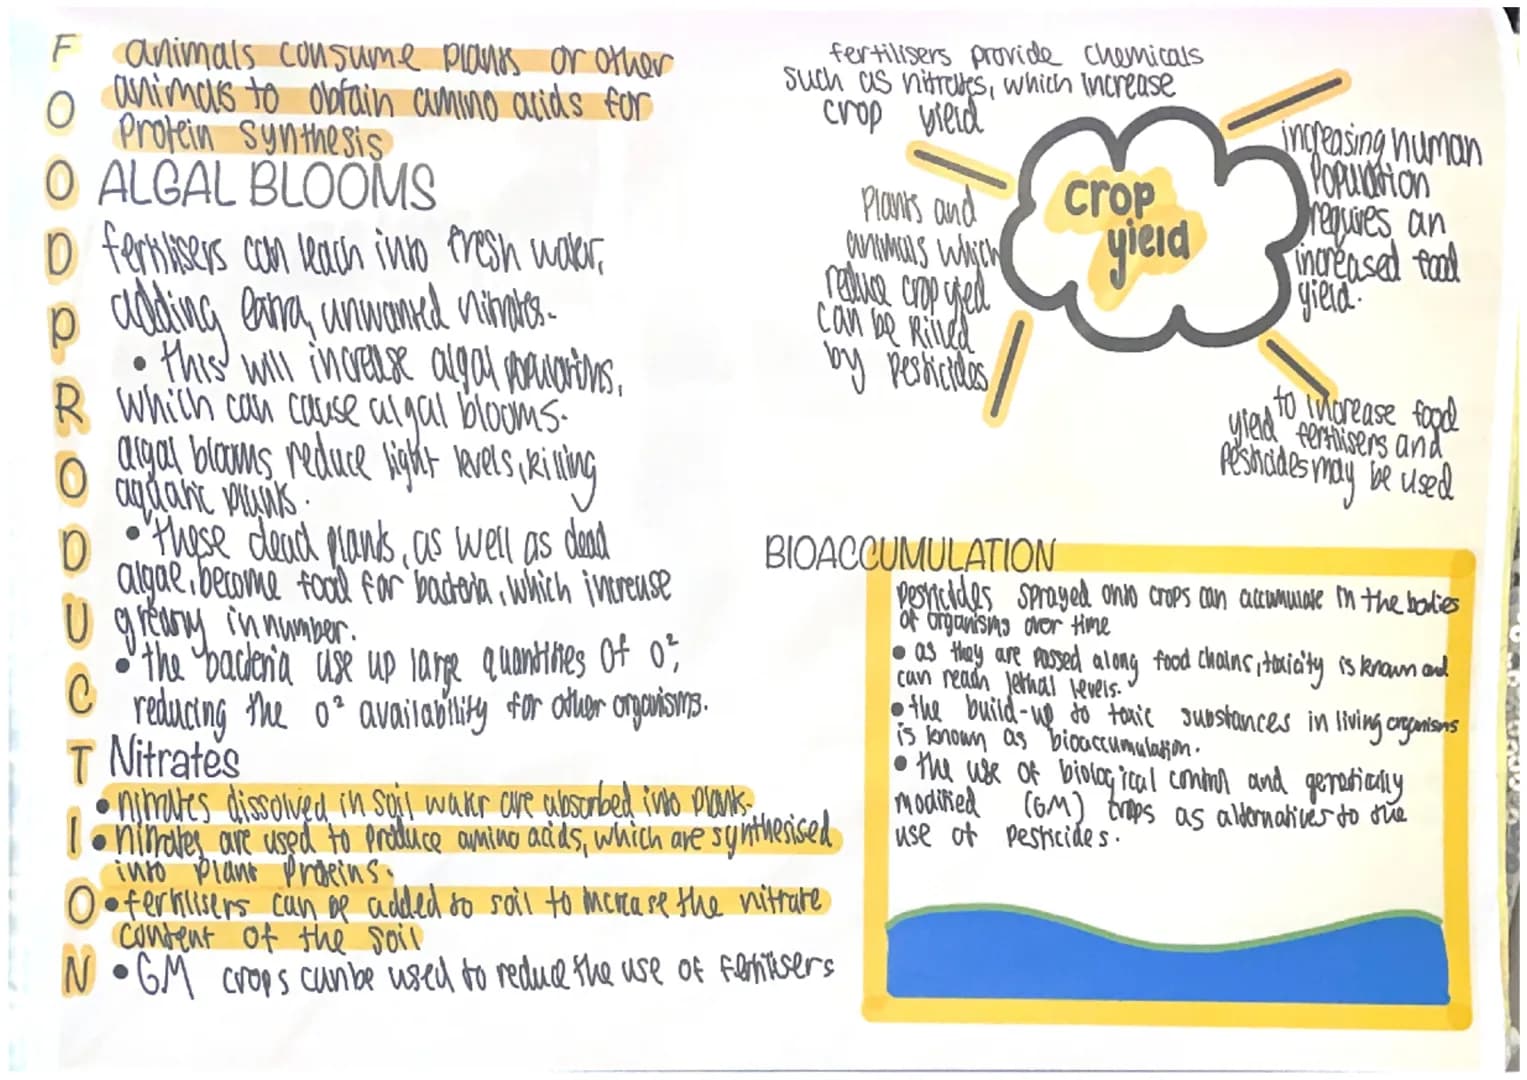 FOOD PRODUCTION
animals consume plants or other
animals to obtain amino acids for
protein synthesis
ALGAL BLOOMS
fertilisers can leach into fresh water,
adding extra, unwanted nitrates.
• this will increase algal populations,
which can cause algal blooms.
algal blooms reduce light levels, killing
aquatic plants.
• these dead plants, as well as dead
algae, become food for bacteria, which increase
greatly in number.
• the bacteria use up large quantities of O²,
reducing the O² availability for other organisms.
Nitrates
• nitrates dissolved in soil water are absorbed into plants.
• nitrates are used to produce amino acids, which are synthesised
into plant proteins.
• fertilisers can be added to soil to increase the nitrate
content of the soil
• GM crops can be used to reduce the use of fertilisers
fertilisers provide chemicals
such as nitrates, which increase
crop yield
crop
yield
increasing human
population
requires an
increased food
yield.
Plants and
animals which
reduce crop yield
can be killed
by pesticides
to increase food
yield fertilisers and
pesticides may be used
BIOACCUMULATION
pesticides sprayed onto crops can accumulate in the bodies
of organisms over time
• as they are passed along food chains, toxicity is known and
can reach lethal levels.
• the build-up to toxic substances in living organisms
is known as bioaccumulation.
• the use of biological control and genetically
modified (GM) crops as alternatives to the
use of pesticides.